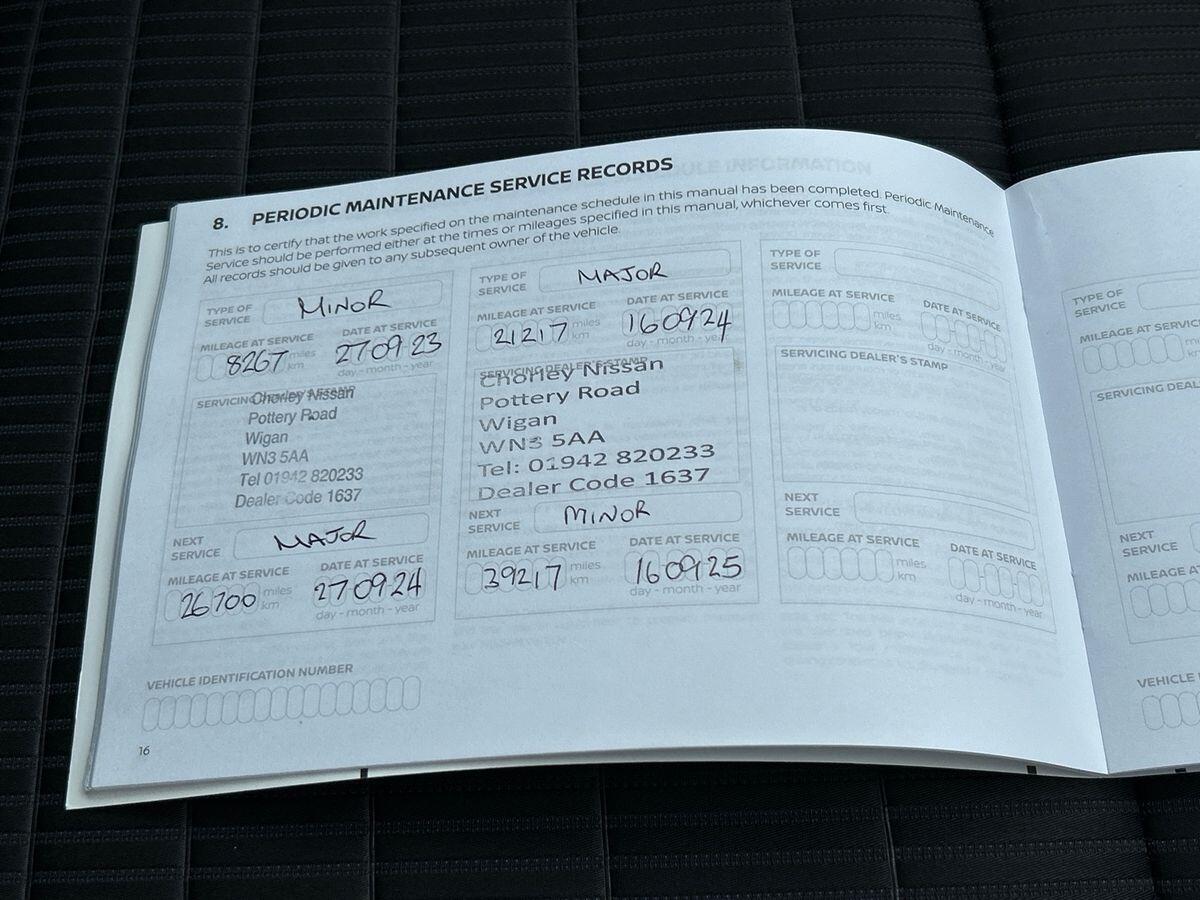 8. PERIODIC MAINTENANCE SERVICE RECORDS
This is to certify that the work specified on the maintenance schedule in this manual has been completed. Periodic Maintenance
Service should be performed either at the times or mileages specified in this manual, whichever comes first.
All records should be given to any subsequent owner of the vehicle.
TYPE OF
SERVICE
MINOR
MILEAGE AT SERVICE
DATE AT SERVICE
8267
miles
km
27 09 23
day - month - year
SERVICING DEALER'S STAMP
Chorley Nissan
Pottery Road
Wigan
WN3 5AA
Tel 01942 820233
Dealer Code 1637
NEXT
SERVICE
MAJOR
MILEAGE AT SERVICE
DATE AT SERVICE
26700
miles
km
27 09 24
day - month - year
TYPE OF
SERVICE
MAJOR
MILEAGE AT SERVICE
DATE AT SERVICE
21217
miles
km
16 09 24
day - month - year
SERVICING DEALER'S STAMP
Chorley Nissan
Pottery Road
Wigan
WN3 5AA
Tel: 01942 820233
Dealer Code 1637
NEXT
SERVICE
MINOR
MILEAGE AT SERVICE
DATE AT SERVICE
39217
miles
km
16 09 25
day - month - year
TYPE OF
SERVICE
MILEAGE AT SERVICE
DATE AT SERVICE
miles
km
day - month - year
SERVICING DEALER'S STAMP
NEXT
SERVICE
MILEAGE AT SERVICE
DATE AT SERVICE
miles
km
day - month - year
VEHICLE IDENTIFICATION NUMBER
16
TYPE OF
SERVICE
MILEAGE AT
SERVICING
NEXT
SERVICE
MILEAGE AT
VEHICLE